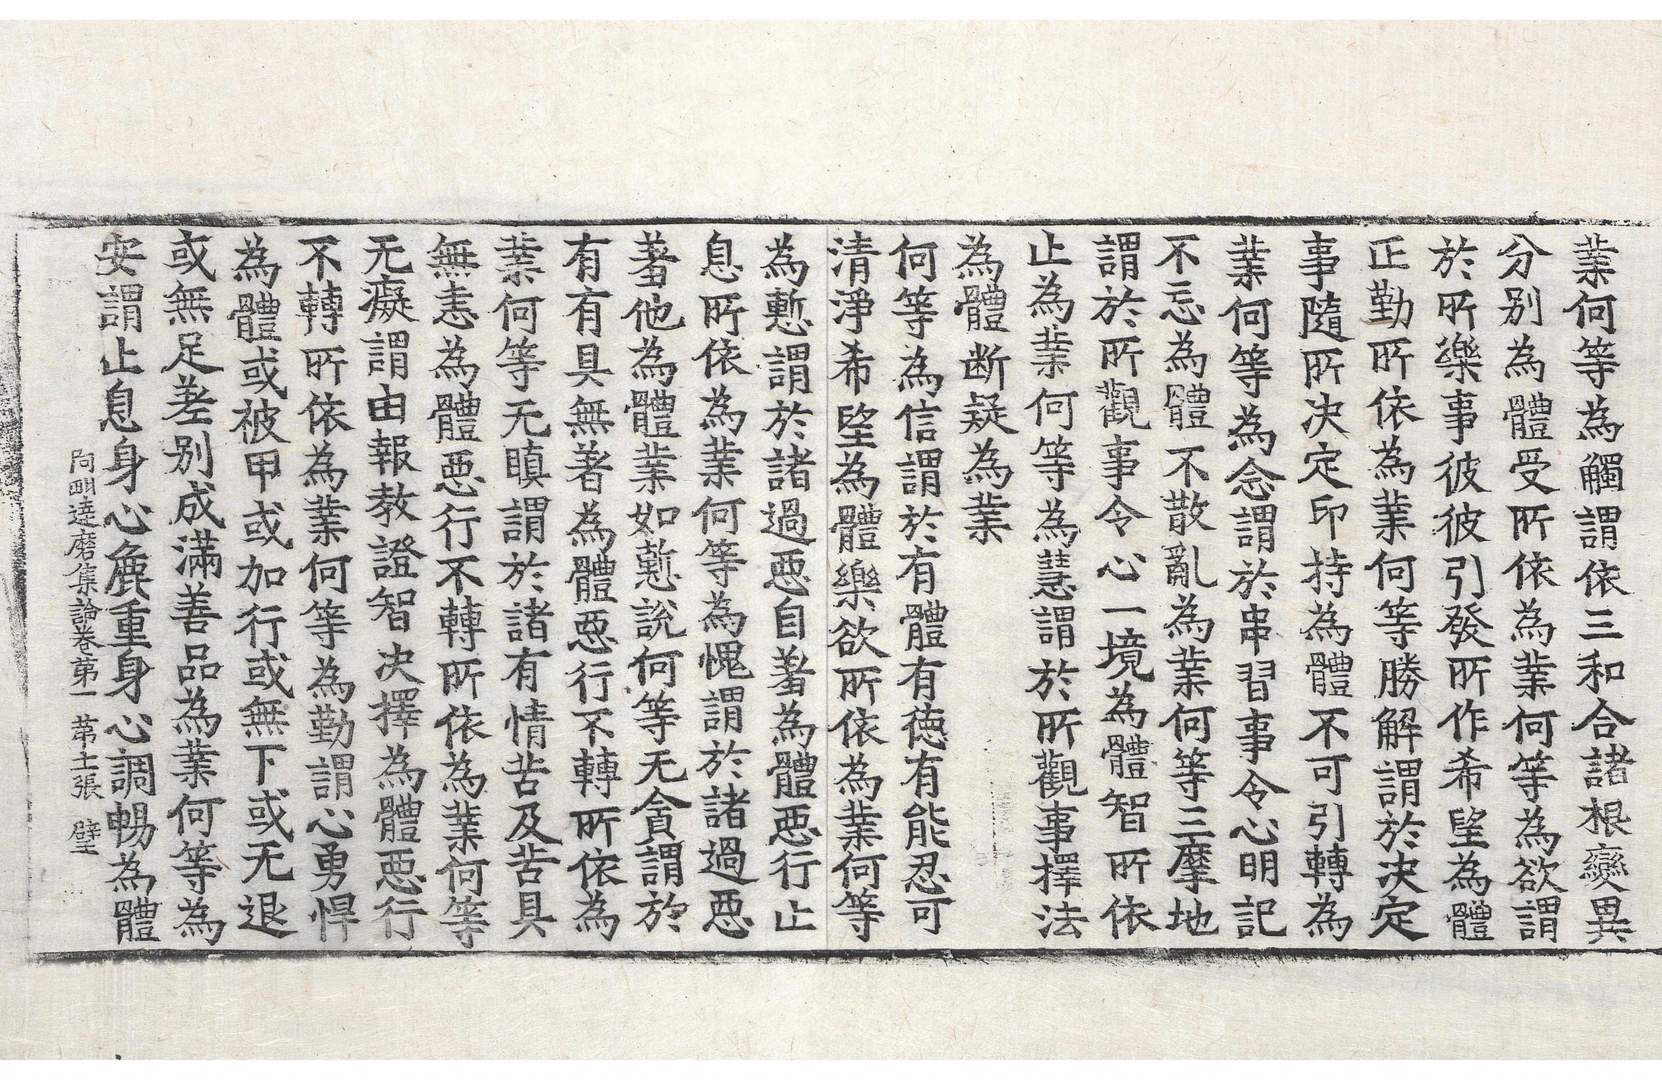 業何等為觸謂依三和合諸根變異
分别為體受所依為業何等為欲謂
於所樂事彼彼引發所作希望為體
正勤所依為業何等勝解謂於决定
事隨所决定印持為體不可引轉為
業何等為念謂於串習事令心明記
不忘為體不散亂為業何等三摩地
謂於所觀事令心一境為體智所依
止為業何等為慧謂於所觀事擇法
為體斷疑為業
何等為信謂於有體有德有能忍可
清淨希望為體樂欲所依為業何等
為慙謂於諸過惡自羞為體惡行止
息所依為業何等為愧謂於諸過惡
羞他為體業如慙說何等无貪謂於
有有具無著為體惡行不轉所依為
業何等无瞋謂於諸有情苦及苦具
無恚為體惡行不轉所依為業何等
无癡謂由報教證智决擇為體惡行
不轉所依為業何等為勤謂心勇悍
為體或被甲或加行或無下或无退
或無足差别成滿善品為業何等為
安謂止息身心麁重身心調暢為體
阿毗達磨集論卷第一　第十張　璧